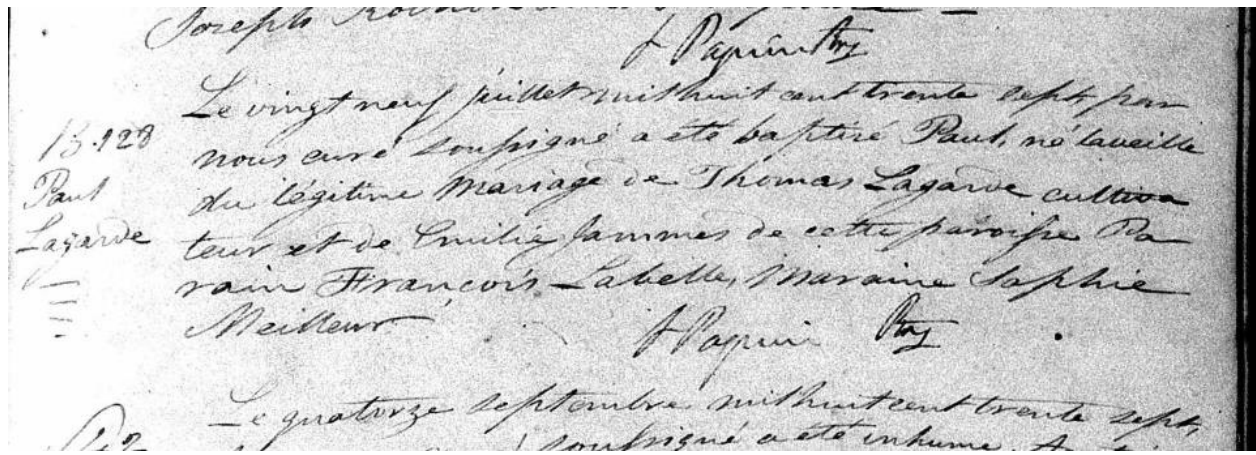 Joseph
J Papin Ptre
B. 128
Paul
Lagarde
Le vingt neuf juillet mil huit cent trente sept, par
nous curé soussigné a été baptisé Paul, né la veille
du légitime mariage de Thomas Lagarde cultiva
teur et de Emilie Jammes de cette paroisse Pa
rain François Labelle, maraine Sophie
Meilleur
J Papin Ptre
Le quatorze septembre mil huit cent trente sept,
soussigné a été inhumé